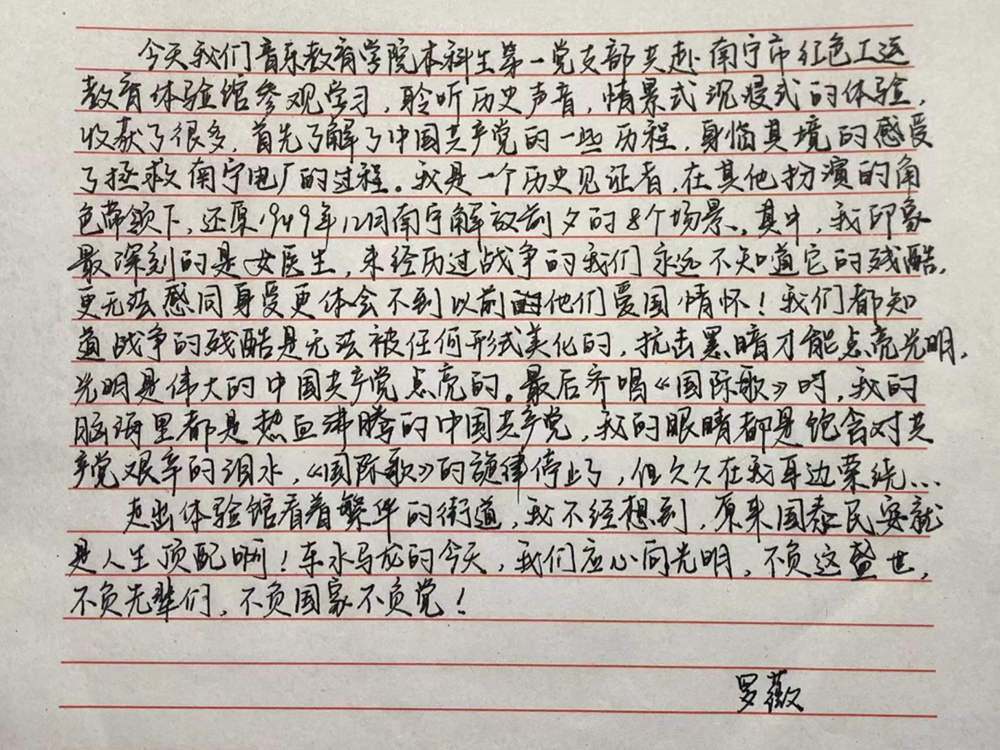 今天我们音乐教育学院本科生第一党支部共赴南宁市红色工运
教育体验馆参观学习，聆听历史声音，情景式沉浸式的体验，
收获了很多，首先了解了中国共产党的一些历程，身临其境的感受
了拯救南宁电厂的过程。我是一个历史见证者，在其他扮演的角
色带领下，还原1949年12月南宁解放前夕的8个场景。其中，我印象
最深刻的是女医生，未经历过战争的我们永远不知道它的残酷，
更无法感同身受更体会不到以前的他们爱国情怀！我们都知
道战争的残酷是无法被任何形式美化的，抗击黑暗才能点亮光明，
光明是伟大的中国共产党点亮的。最后齐唱《国际歌》时，我的
脑海里都是热血沸腾的中国共产党，我的眼睛都是饱含对共
产党艰辛的泪水，《国际歌》的旋律停止了，但久久在我耳边萦绕…
走出体验馆看着繁华的街道，我不经想到，原来国泰民安就
是人生顶配啊！车水马龙的今天，我们应心向光明，不负这盛世，
不负先辈们，不负国家不负党！
罗薇